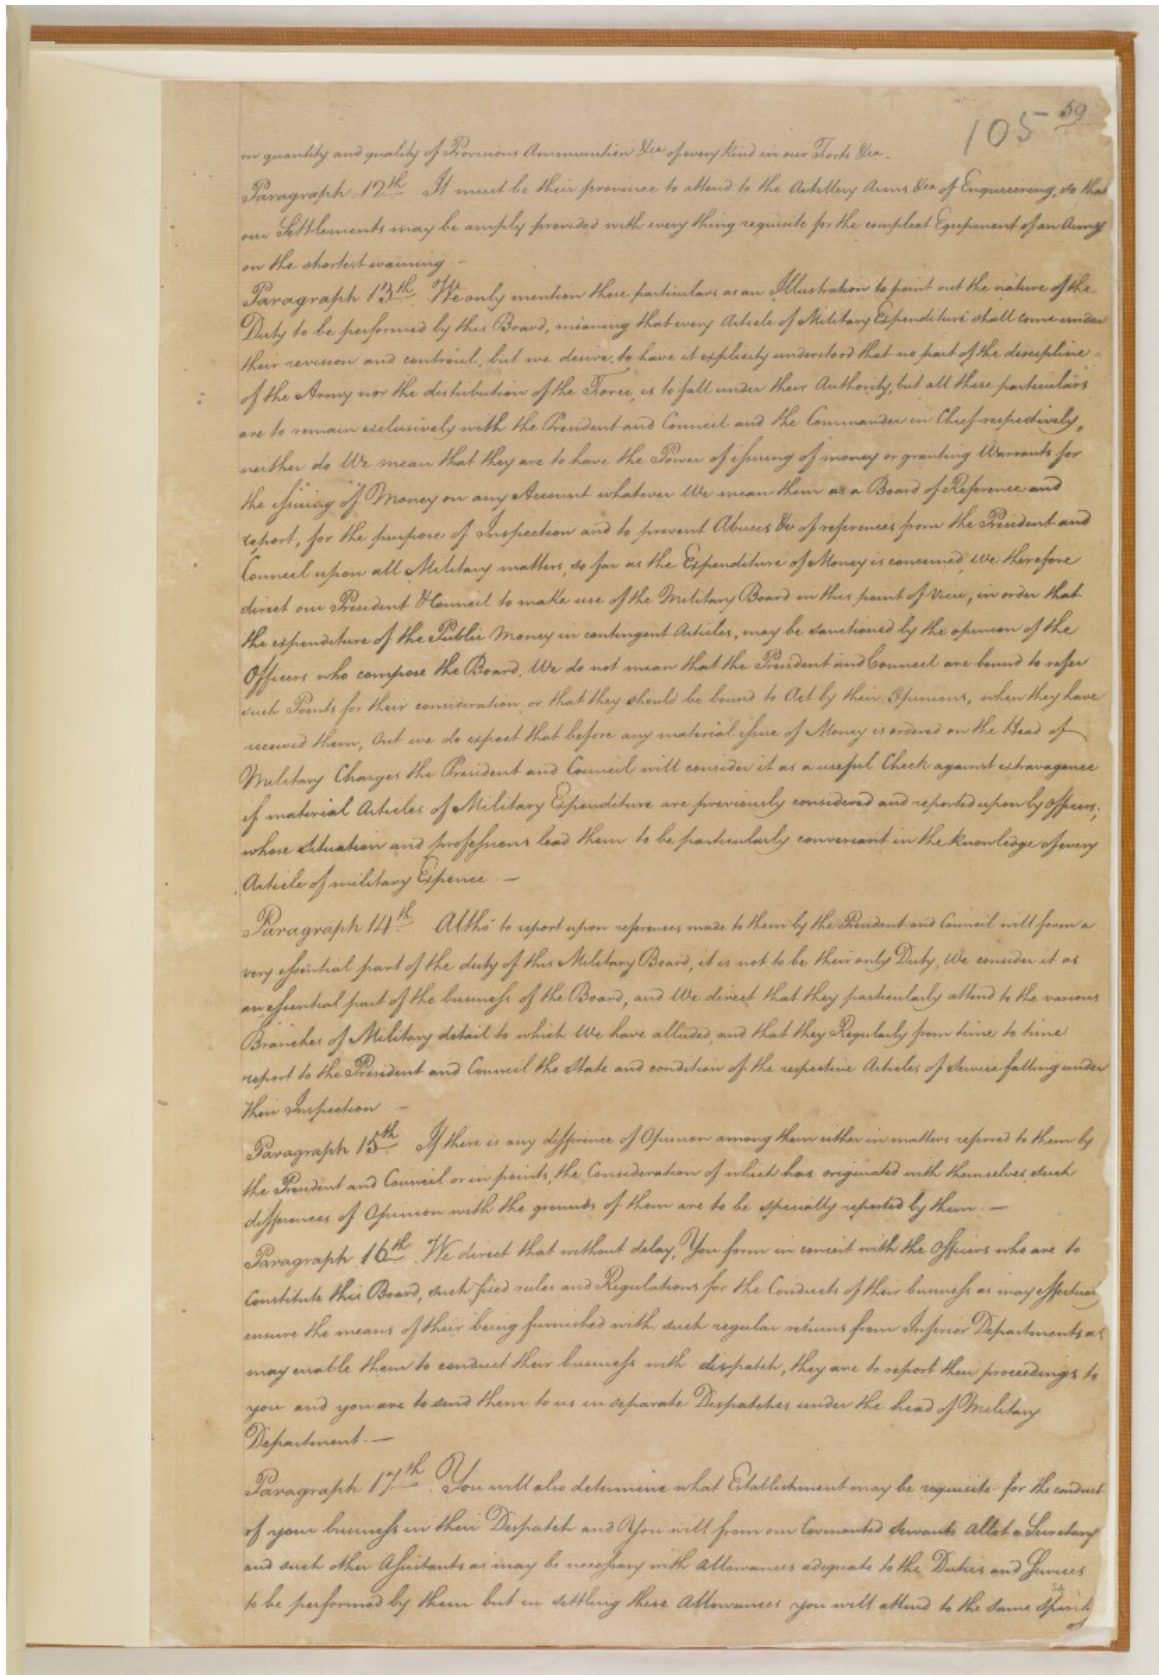 105 59
in quantity and quality of Provisions Ammunition &ca of every kind in our Forts &ca.
Paragraph 12th It must be their province to attend to the Artillery Arms &ca of Engineering, so that
our Settlements may be amply provided with every thing requisite for the compleat Equipment of an Army
on the shortest warning —
Paragraph 13th We only mention these particulars as an Illustration to point out the nature of the
Duty to be performed by this Board, meaning that every Article of Military Expenditure shall come under
their revision and controul, but we desire, to have it explicitly understood that no part of the discipline
of the Army nor the distribution of the Force, is to fall under their Authority, but all these particulars
are to remain exclusively with the President and Council and the Commander in Chief respectively,
neither do We mean that they are to have the Power of issuing of money or granting Warrants for
the issuing of Money on any Account whatever We mean them as a Board of Reference and
report, for the purpose of Inspection and to prevent Abuses &c of references from the President and
Council upon all Military matters, so far as the Expenditure of Money is concerned, We therefore
direct our President & Council to make use of the Military Board in this point of View, in order that
the expenditure of the Public Money in contingent Articles, may be sanctioned by the opinion of the
Officers who compose the Board. We do not mean that the President and Council are bound to refer
such Points for their consideration or that they should be bound to Act by their Opinions, when they have
received them, but we do expect that before any material issue of Money is ordered on the Head of
Military Charges the President and Council will consider it as a useful Check against extravagance
if material Articles of Military Expenditure are previously considered and reported upon by Officers,
whose situation and professions lead them to be particularly conversant in the knowledge of every
Article of military Expence. —
Paragraph 14th Altho' to report upon references made to them by the President and Council will form a
very essential part of the duty of this Military Board, it is not to be their only Duty, We consider it as
an essential part of the business of the Board, and We direct that they particularly attend to the various
Branches of Military detail to which We have alluded, and that they Regularly from time to time
report to the President and Council the State and condition of the respective Articles of Service falling under
their Inspection —
Paragraph 15th If there is any difference of Opinion among them either in matters referred to them by
the President and Council or in points, the Consideration of which has originated with themselves such
differences of Opinion with the grounds of them are to be specially reported by them. —
Paragraph 16th We direct that without delay, You form in concert with the Officers who are to
Constitute this Board, such fixed rules and Regulations for the Conducts of their business as may effectually
ensure the means of their being furnished with such regular returns from Inferior Departments as
may enable them to conduct their business with dispatch, they are to report their proceedings to
you and you are to send them to us in separate Despatches under the head of Military
Department. —
Paragraph 17th You will also determine what Establishment may be requisite for the conduct
of your business in their Despatch and You will from our Covenanted Servants allot a Secretary
and such other Assistants as may be necessary with allowances adequate to the Duties and Services
to be performed by them but in settling these Allowances you will attend to the same spirit
of